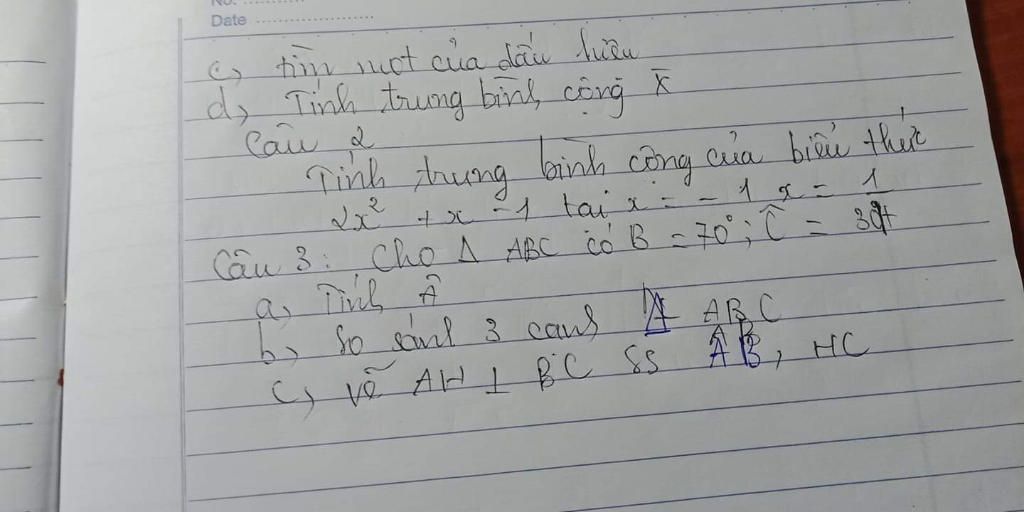 No.
Date
c, tìm mot của dấu hiệu
d, Tính trung bình cộng X̄
Câu 2
Tính trung bình công của biểu thức
2x² + x - 1 tại x = - 1 x = 1
Câu 3: Cho Δ ABC có B = 70°; Ĉ = 30
a, Tính Â
b, So sánh 3 canh Δ ABC
c, vẽ AH ⊥ BC SS AB, HC